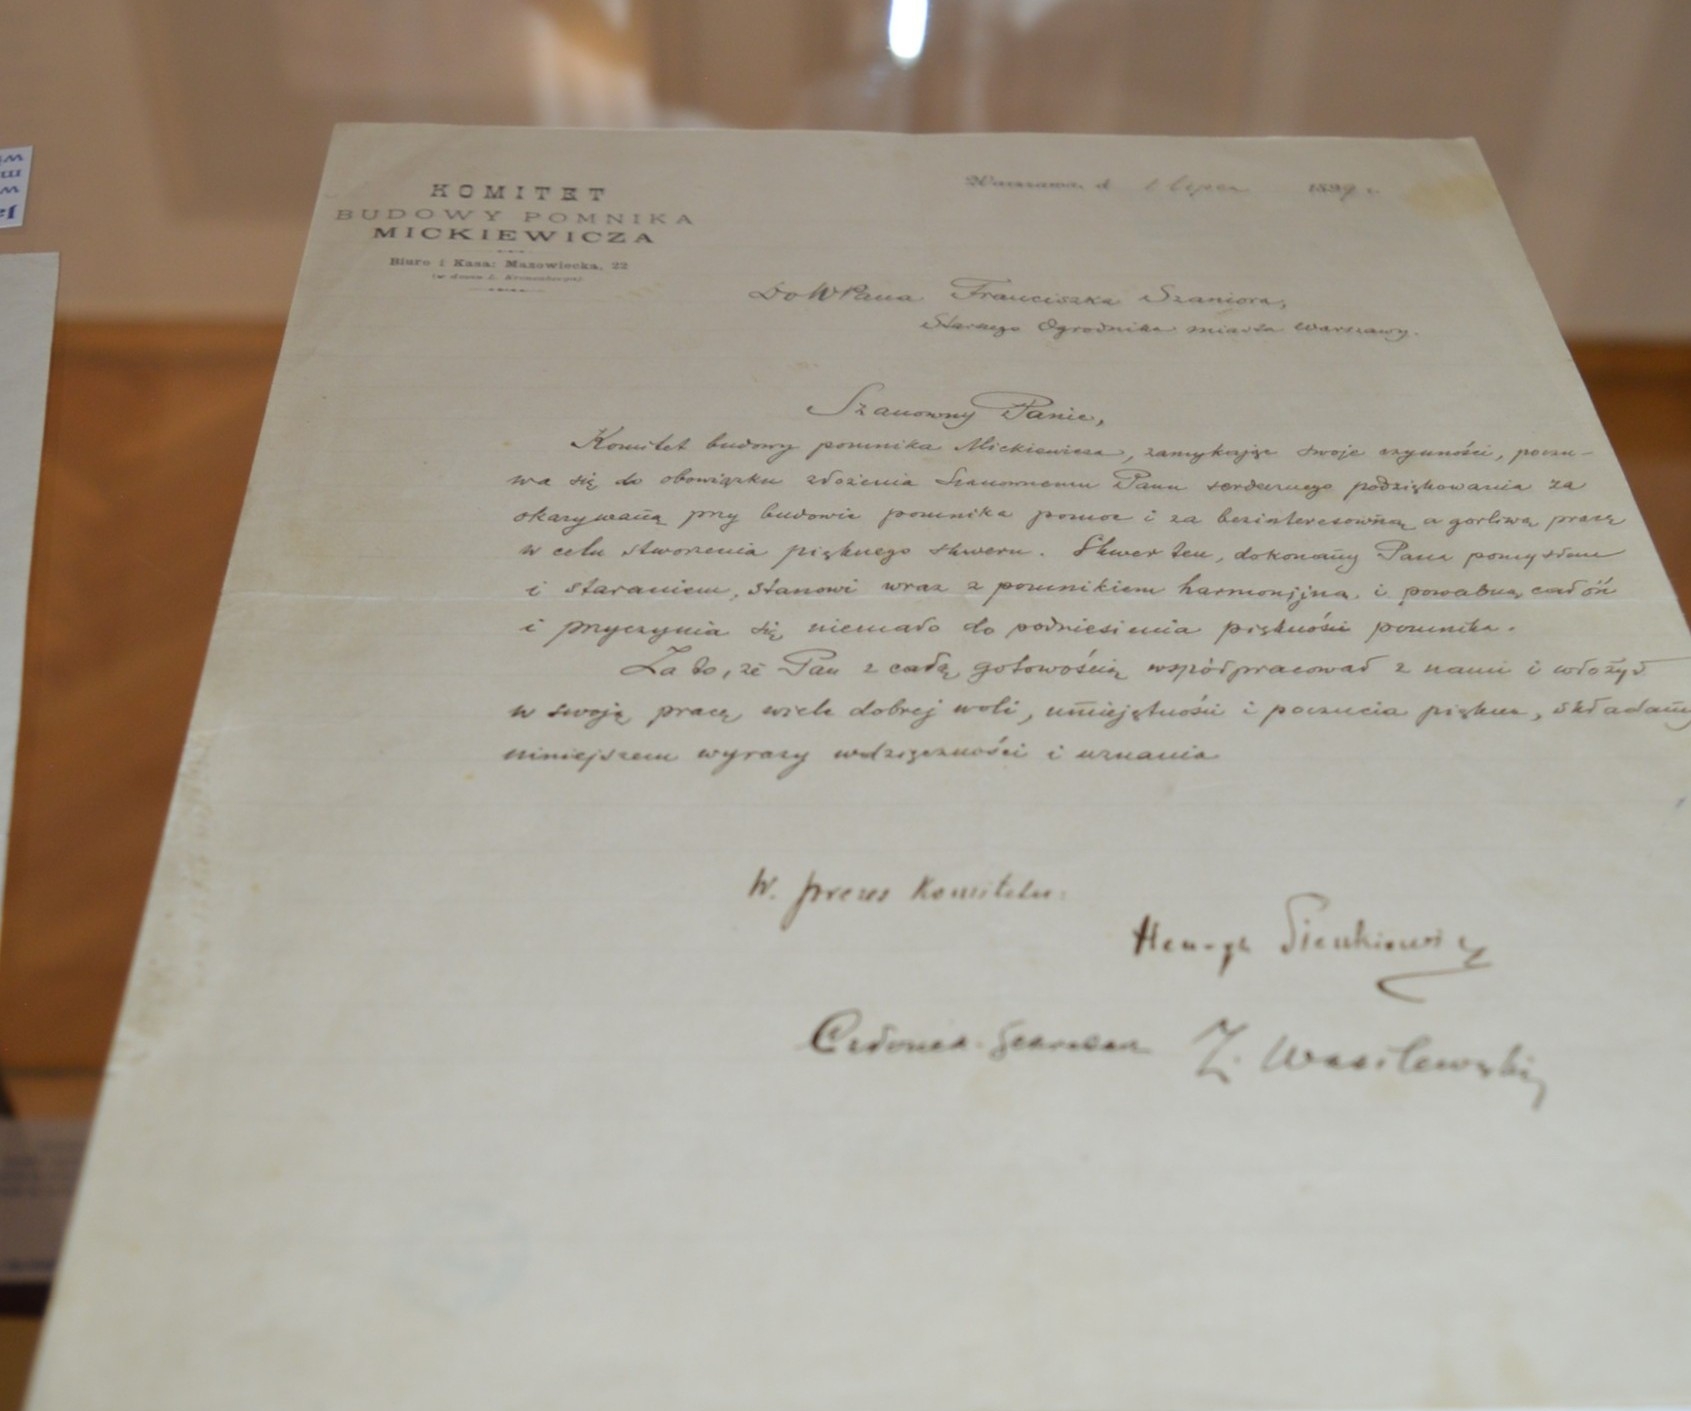 KOMITET
BUDOWY POMNIKA
MICKIEWICZA
Biuro i Kasa: Mazowiecka, 22
(w domu L. Kronenberga)
Warszawa, d. 1 lipca 1899 r.
Do WPana Franciszka Szaniora,
Starszego Ogrodnika miasta Warszawy.
Szanowny Panie,
Komitet budowy pomnika Mickiewicza, zamykając swoje czynności, poczu-
wa się do obowiązku złożenia Szanownemu Panu serdecznego podziękowania za
okazywaną przy budowie pomnika pomoc i za bezinteresowną a gorliwą pracę
w celu stworzenia pięknego skweru. Skwer ten, dokonany Pana pomysłem
i staraniem, stanowi wraz z pomnikiem harmonijną i powabną całość
i przyczynia się niemało do podniesienia piękności pomnika.
Za to, że Pan z całą gotowością współpracował z nami i włożył
w swoją pracę wiele dobrej woli, umiejętności i poczucia piękna, składamy
niniejszem wyrazy wdzięczności i uznania
W. prezes Komitetu:
Henryk Sienkiewicz
Członek-Sekretarz Z. Wasilewski